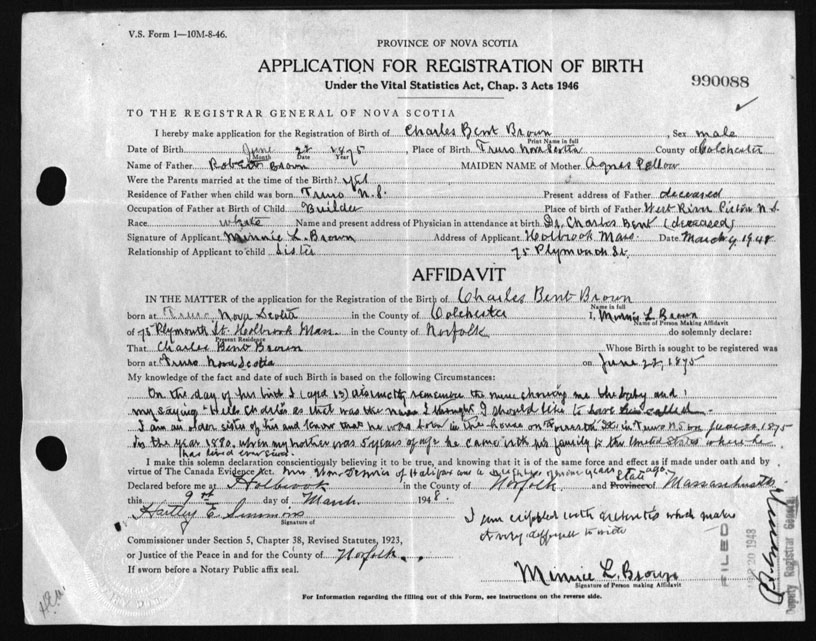 V.S. Form 1—10M-8-46.
PROVINCE OF NOVA SCOTIA
APPLICATION FOR REGISTRATION OF BIRTH
Under the Vital Statistics Act, Chap. 3 Acts 1946
990088
TO THE REGISTRAR GENERAL OF NOVA SCOTIA
I hereby make application for the Registration of Birth of Charles Bent Brown, Sex male
Print Name in full
Date of Birth June 22 1875, Place of Birth Truro Nova Scotia County of Colchester
Month Date Year
Name of Father Robert Brown MAIDEN NAME of Mother Agnes Pellow
Were the Parents married at the time of the Birth? yes
Residence of Father when child was born Truro N.S. Present address of Father deceased
Occupation of Father at Birth of Child Builder Place of birth of Father West River Pictou N.S.
Race white Name and present address of Physician in attendance at birth Dr. Charles Bent (deceased)
Signature of Applicant Minnie L. Brown Address of Applicant Holbrook Mass. Date March 9, 1948
Relationship of Applicant to child Sister 75 Plymouth St.
AFFIDAVIT
IN THE MATTER of the application for the Registration of the Birth of Charles Bent Brown
Name in full
born at Truro, Nova Scotia in the County of Colchester I, Minnie L. Brown
Name of Person Making Affidavit
of 75 Plymouth St. Holbrook Mass. in the County of Norfolk do solemnly declare:
Present Residence
That Charles Bent Brown Whose Birth is sought to be registered was
born at Truro Nova Scotia on June 22, 1875
My knowledge of the fact and date of such Birth is based on the following Circumstances:
On the day of his birth I (aged 13) distinctly remember the nurse showing me the baby and
my saying "Hello Charles" as that was the name I thought I should like to have him called.
I am an older sister of his and know that he was born in the house on St. in Truro N.S. on June 22, 1875
In the year 1880, when my brother was 5 years of age he came with his family to the United States where he
has lived ever since.
I make this solemn declaration conscientiously believing it to be true, and knowing that it is of the same force and effect as if made under oath and by
virtue of The Canada Evidence Act. Mrs. Wm. of Halifax years ago.
Declared before me at Holbrook in the County of Norfolk and Province of State Massachusetts
this 9th day of March 1948.
Hartley E. Simmons
Signature of
I am crippled with arthritis which makes
it very difficult to write
Commissioner under Section 5, Chapter 38, Revised Statutes, 1923,
or Justice of the Peace in and for the County of Norfolk.
If sworn before a Notary Public affix seal.
Minnie L. Brown
Signature of Person making Affidavit
FILED 20 1948
Deputy Registrar General
For Information regarding the filling out of this Form, see instructions on the reverse side.